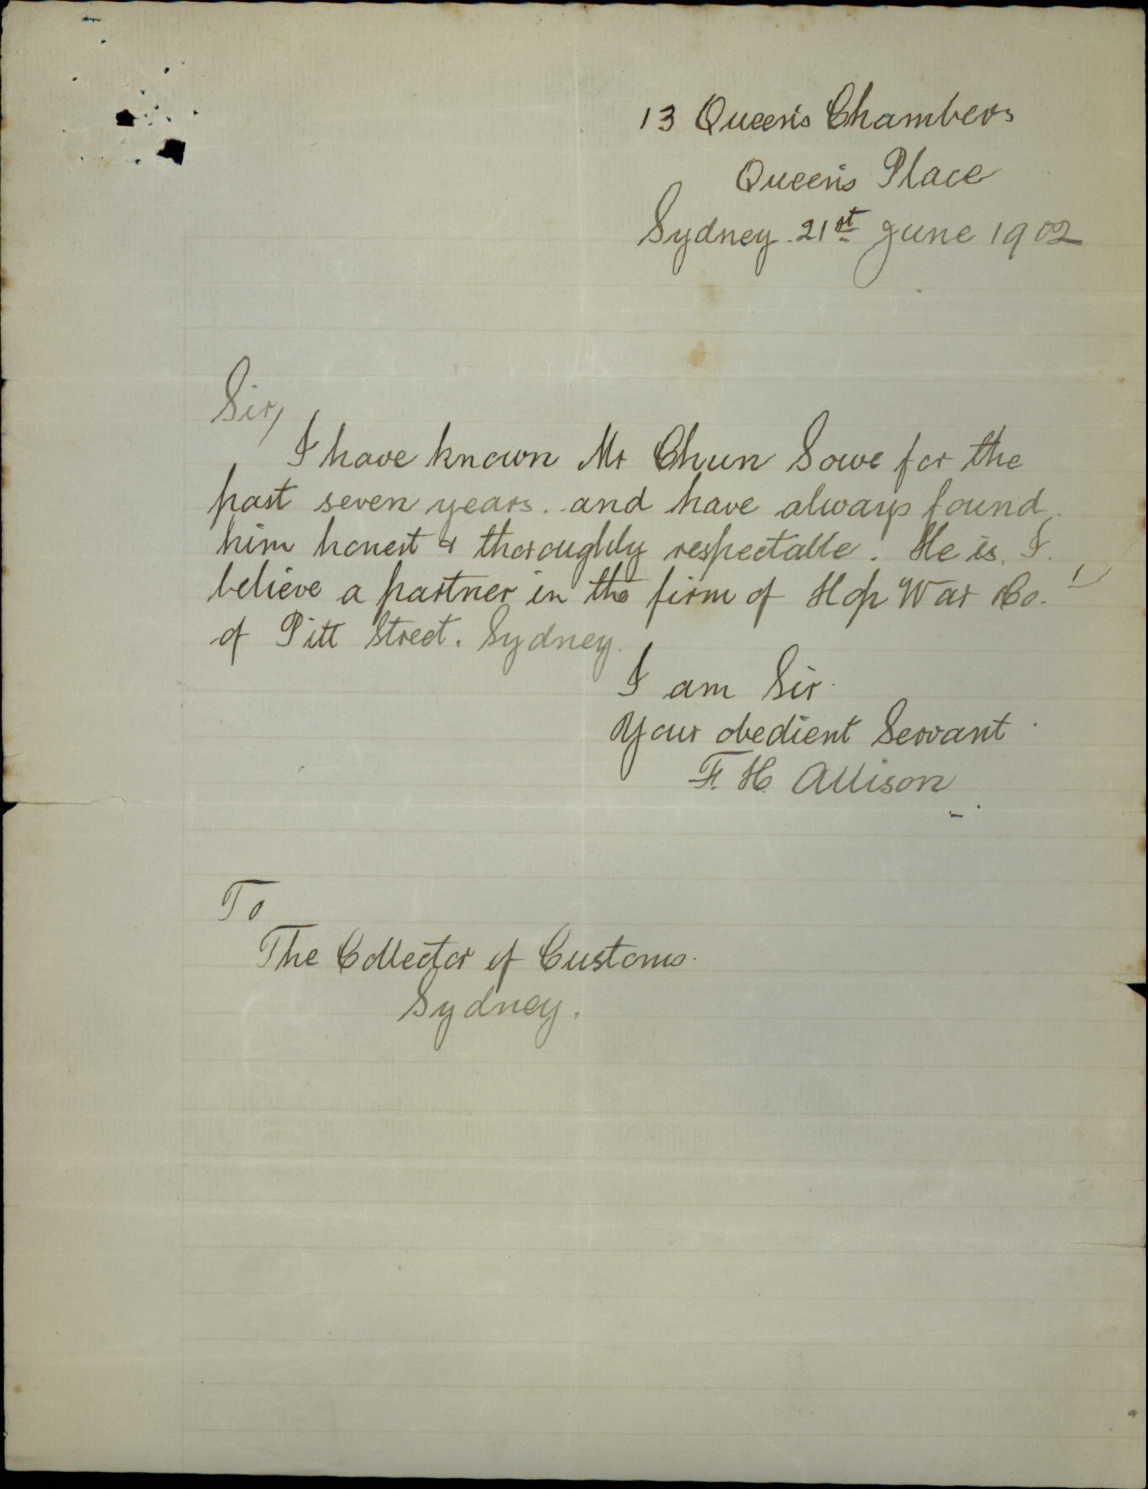 13 Queen's Chambers
Queen's Place
Sydney. 21st June 1902
Sir,
I have known Mr Chun Sowe for the
past seven years. and have always found
him honest & thoroughly respectable. He is, I
believe a partner in the firm of Hop War Co.
of Pitt Street. Sydney.
I am Sir
Your obedient Servant
F. H. Allison
To
The Collector of Customs.
Sydney.